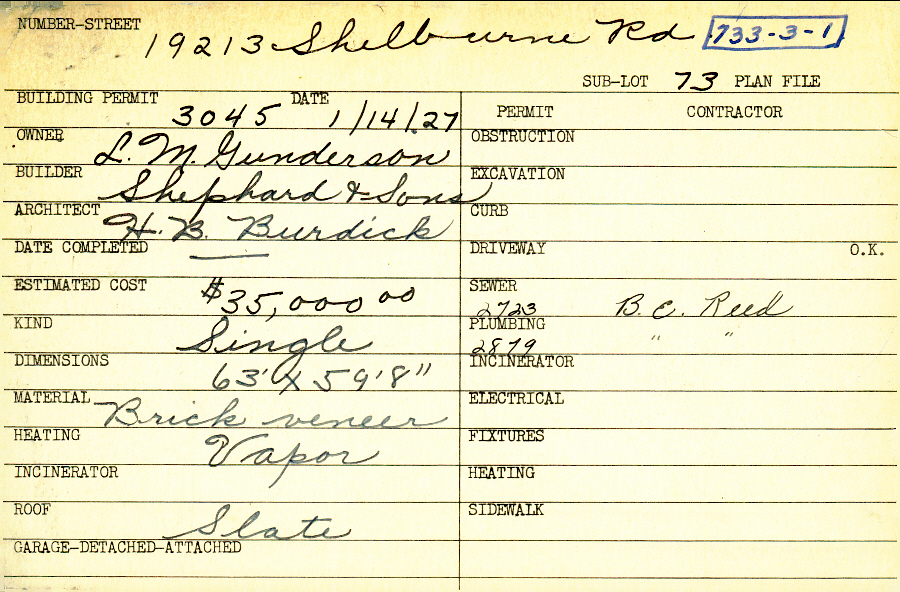 NUMBER-STREET 19213 Shelburne Rd 733-3-1
SUB-LOT 73 PLAN FILE
BUILDING PERMIT 3045 DATE 1/14/27
OWNER L. M. Gunderson
BUILDER Shephard & Sons
ARCHITECT H. B. Burdick
DATE COMPLETED —
ESTIMATED COST $35,000 00
KIND Single
DIMENSIONS 63' X 59'8"
MATERIAL Brick veneer
HEATING Vapor
INCINERATOR
ROOF Slate
GARAGE-DETACHED-ATTACHED
PERMIT CONTRACTOR
OBSTRUCTION
EXCAVATION
CURB
DRIVEWAY O.K.
SEWER
2723 B. C. Reed
PLUMBING
2879 " "
INCINERATOR
ELECTRICAL
FIXTURES
HEATING
SIDEWALK